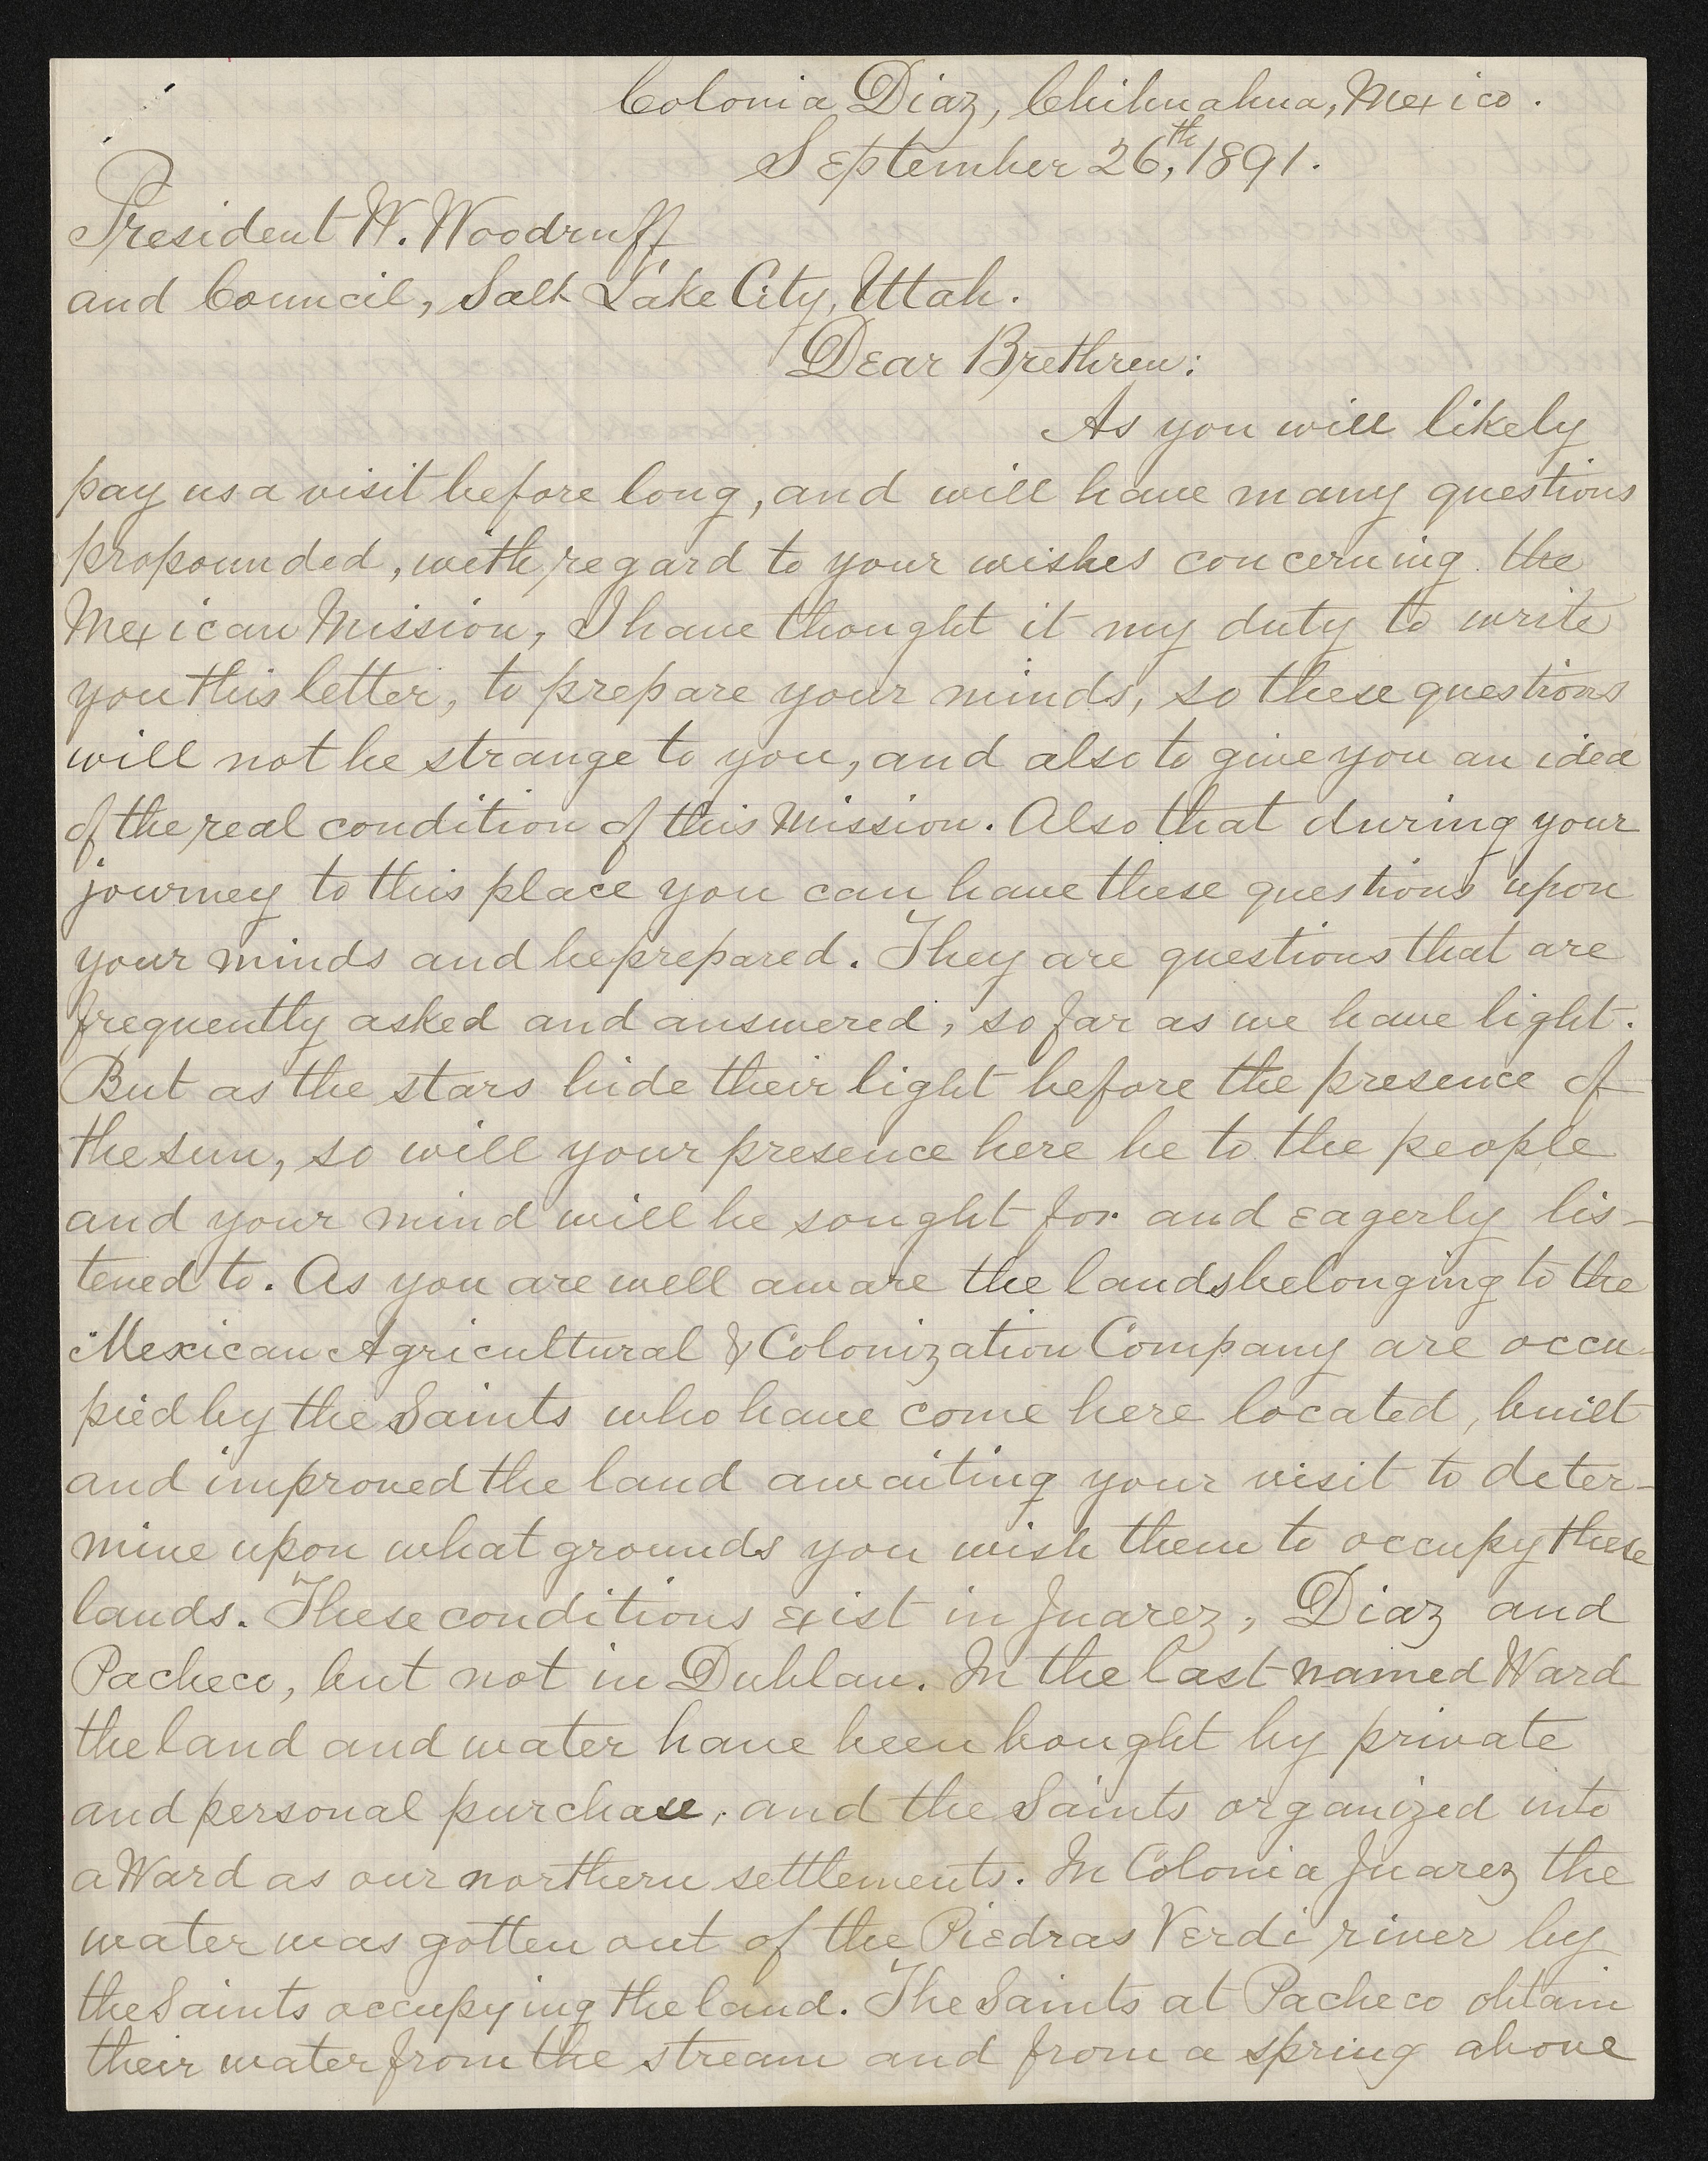 Colonia Diaz, Chihuahua, Mexico.
September 26,th 1891.
President W. Woodruff
and Council, Salt Lake City, Utah.
Dear Brethren:
As you will likely
pay us a visit before long, and will have many questions
propounded, with regard to your wishes concerning the
Mexican Mission, I have thought it my duty to write
you this letter, to prepare your minds, so these questions
will not be strange to you, and also to give you an idea
of the real condition of this Mission. Also that during your
journey to this place you can have these questions upon
your minds and be prepared. They are questions that are
frequently asked and answered, so far as we have light.
But as the stars hide their light before the presence of
the sun, so will your presence here be to the people
and your mind will be sought for and eagerly lis-
tened to. As you are well aware the lands belonging to the
Mexican Agricultural & Colonization Company are occu-
pied by the Saints who have come here located, built
and improved the land awaiting your visit to deter-
mine upon what grounds you wish them to occupy these
lands. These conditions exist in Juarez, Diaz and
Pacheco, but not in Dublan. In the last named Ward
the land and water have been bought by private
and personal purchase, and the Saints organized into
a Ward as our northern settlements. In Colonia Juarez the
water was gotten out of the Piedras Verdi river by
the Saints occupying the land. The Saints at Pacheco obtain
their water from the stream and from a spring above